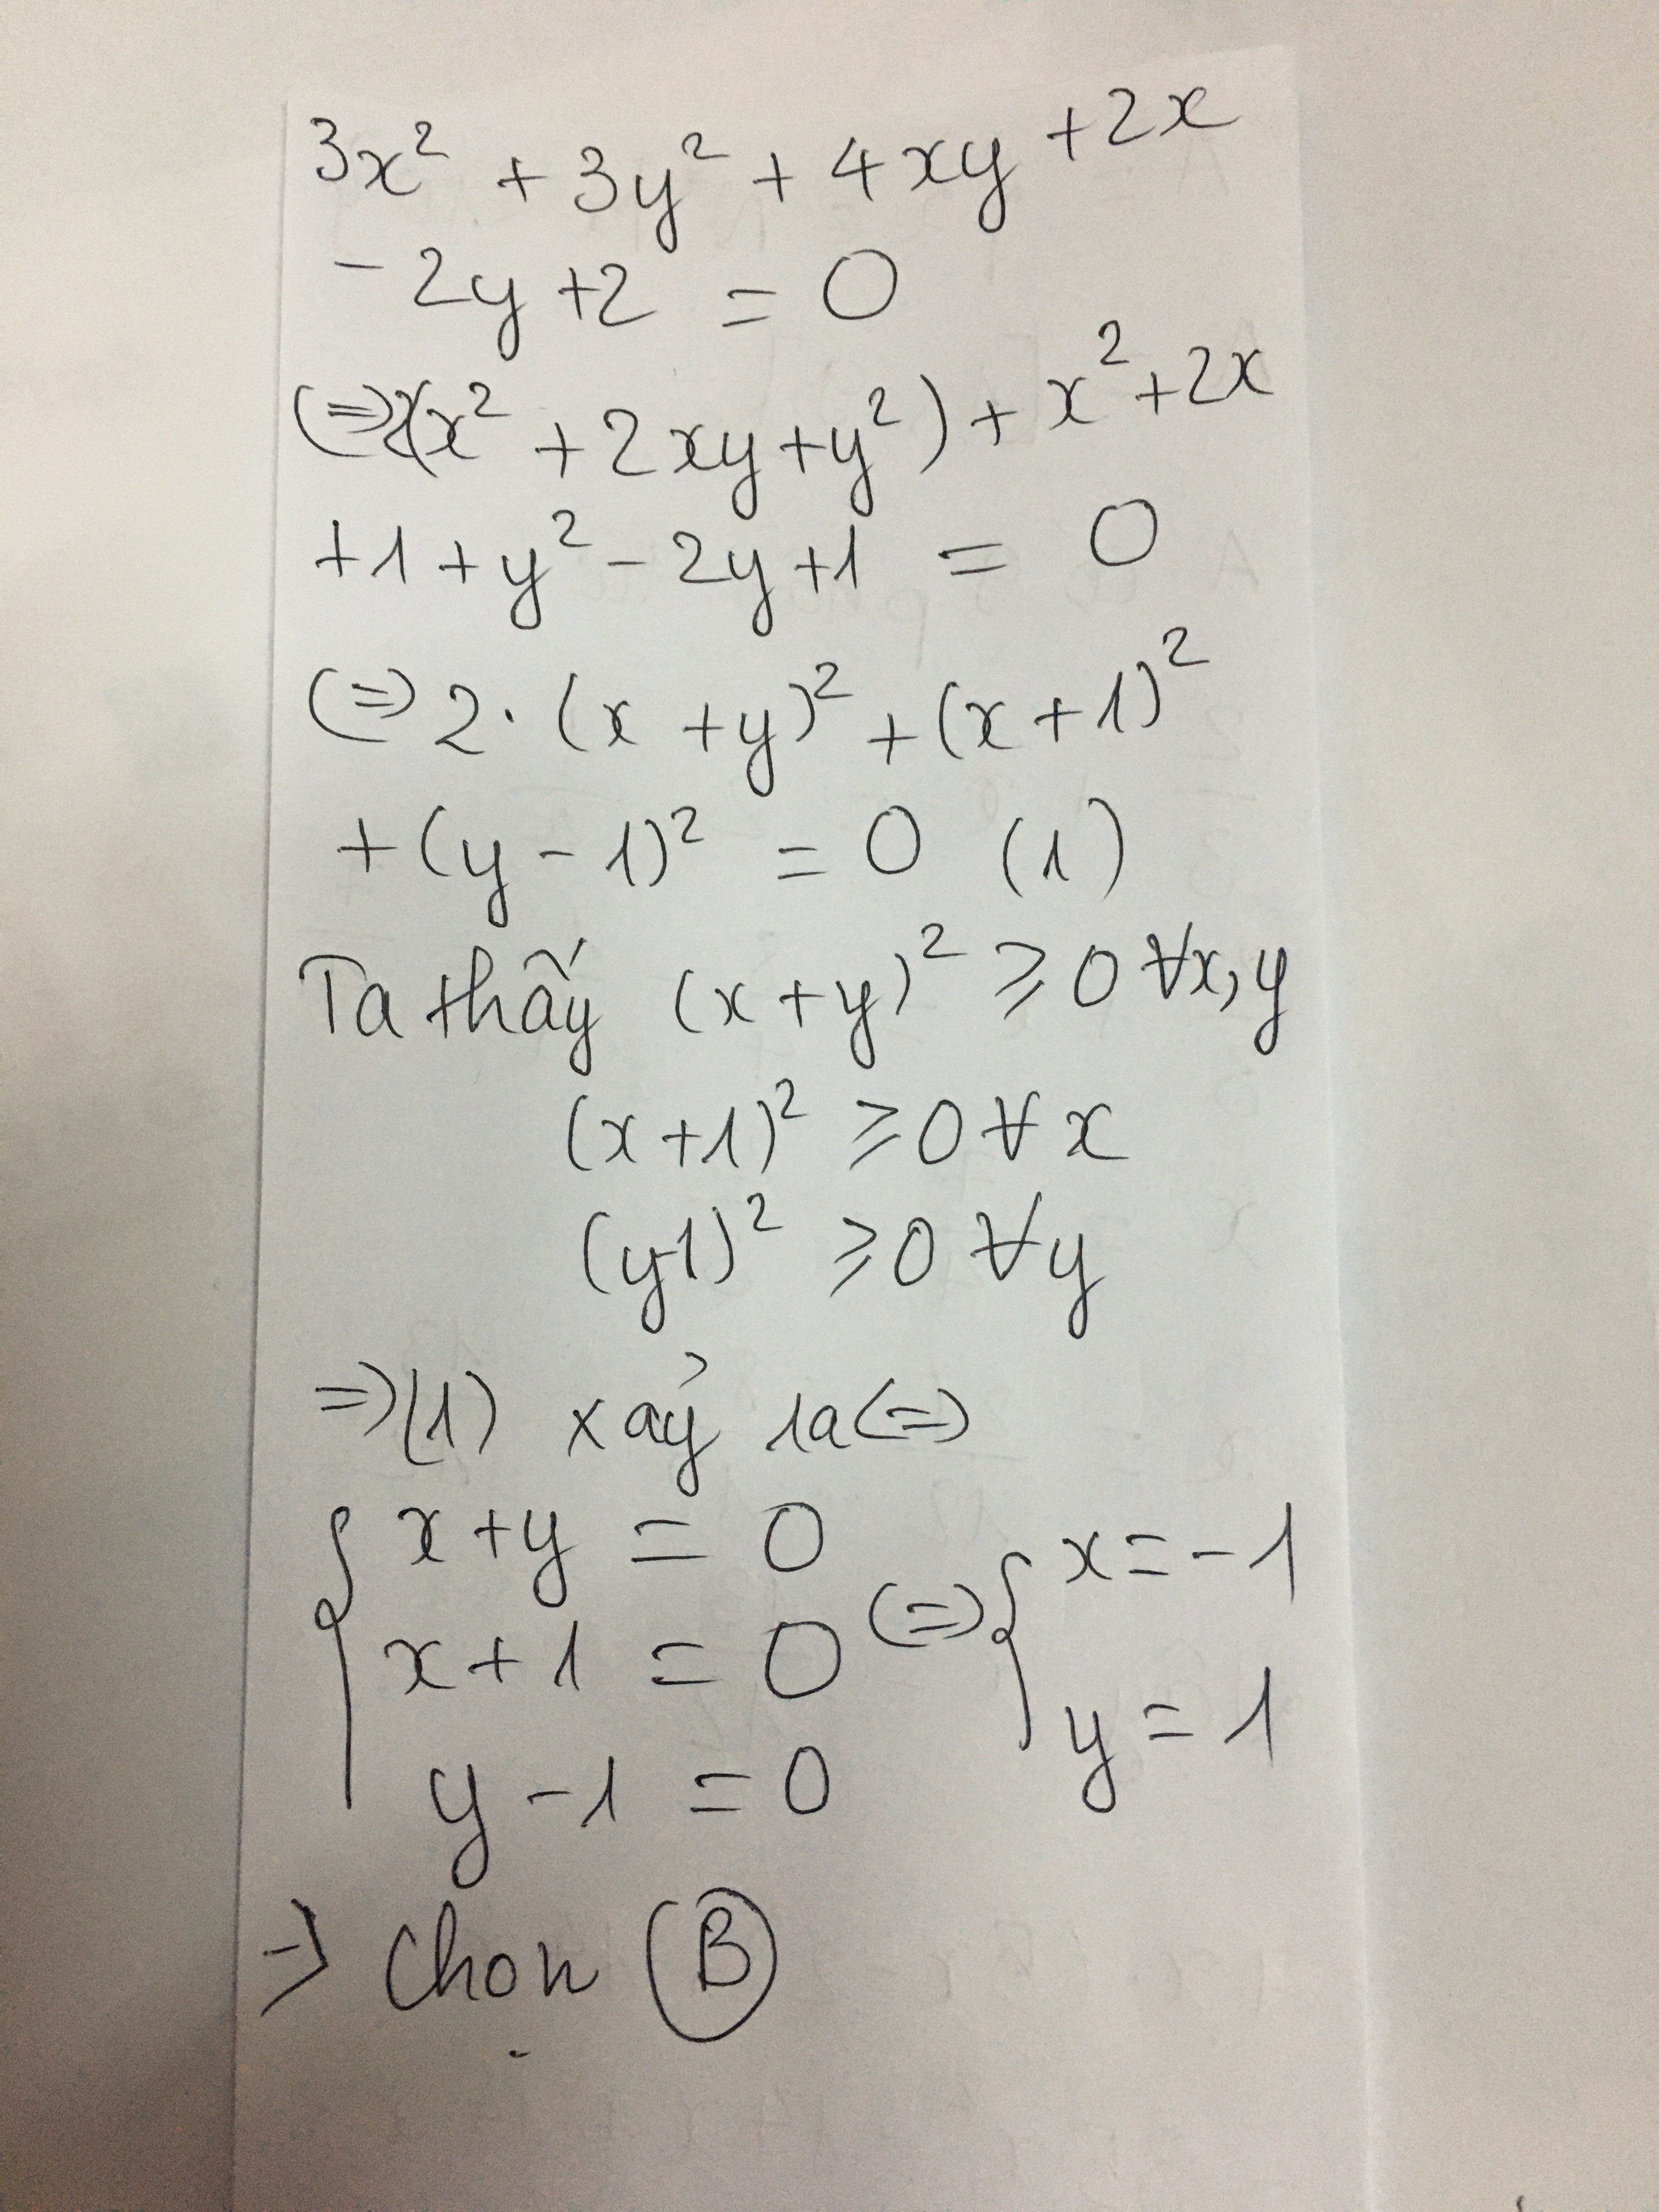 3x² + 3y² + 4xy + 2x
- 2y + 2 = 0
(=) 2(x² + 2xy + y²) + x² + 2x
+ 1 + y² - 2y + 1 = 0
(=) 2. (x + y)² + (x + 1)²
+ (y - 1)² = 0 (1)
Ta thấy (x + y)² ⩾ 0 ∀x, y
(x + 1)² ⩾ 0 ∀ x
(y-1)² ⩾ 0 ∀ y
=) (1) xảy ra (=)
{ x + y = 0
x + 1 = 0
y - 1 = 0
(=) { x = -1
y = 1
→ Chọn B